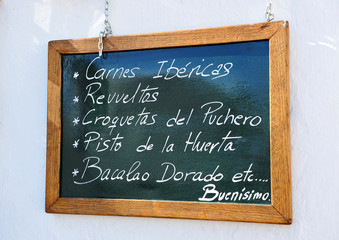 * Carnes Ibéricas
* Revueltos
* Croquetas del Puchero
* Pisto de la Huerta
* Bacalao Dorado etc....
Buenísimo.